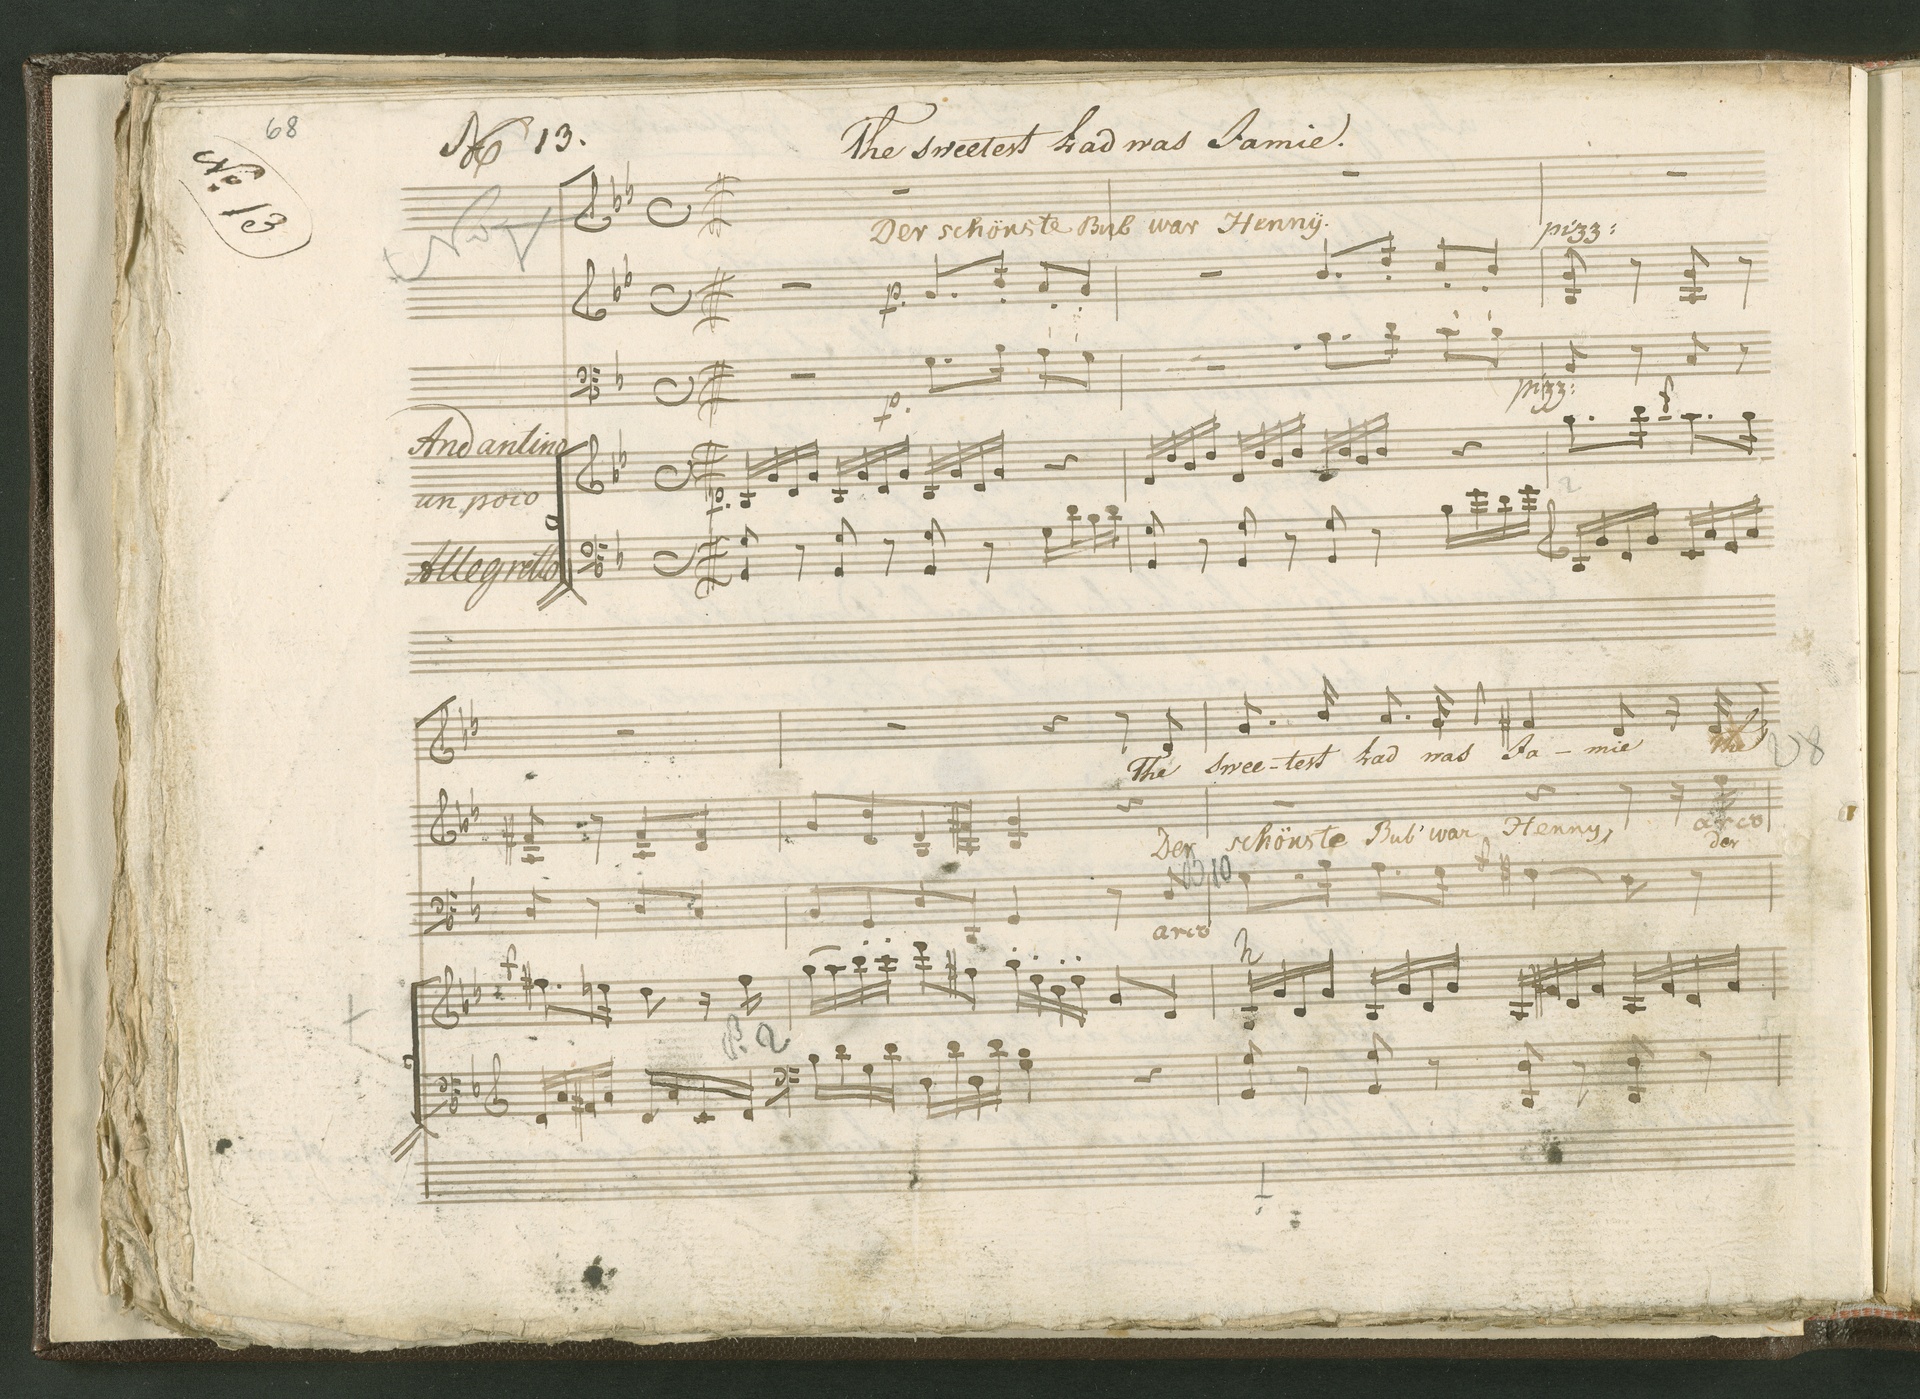 68
No. 13
No 13. The sweetest Lad was Jamie.
Der schönste Bub war Henny.
pizz:
p.
p.
pizz:
Andantino
un poco
Allegretto
The swee-test Lad was Ja-mie the
28
Der schönste Bub' war Henny, der
arco
arco